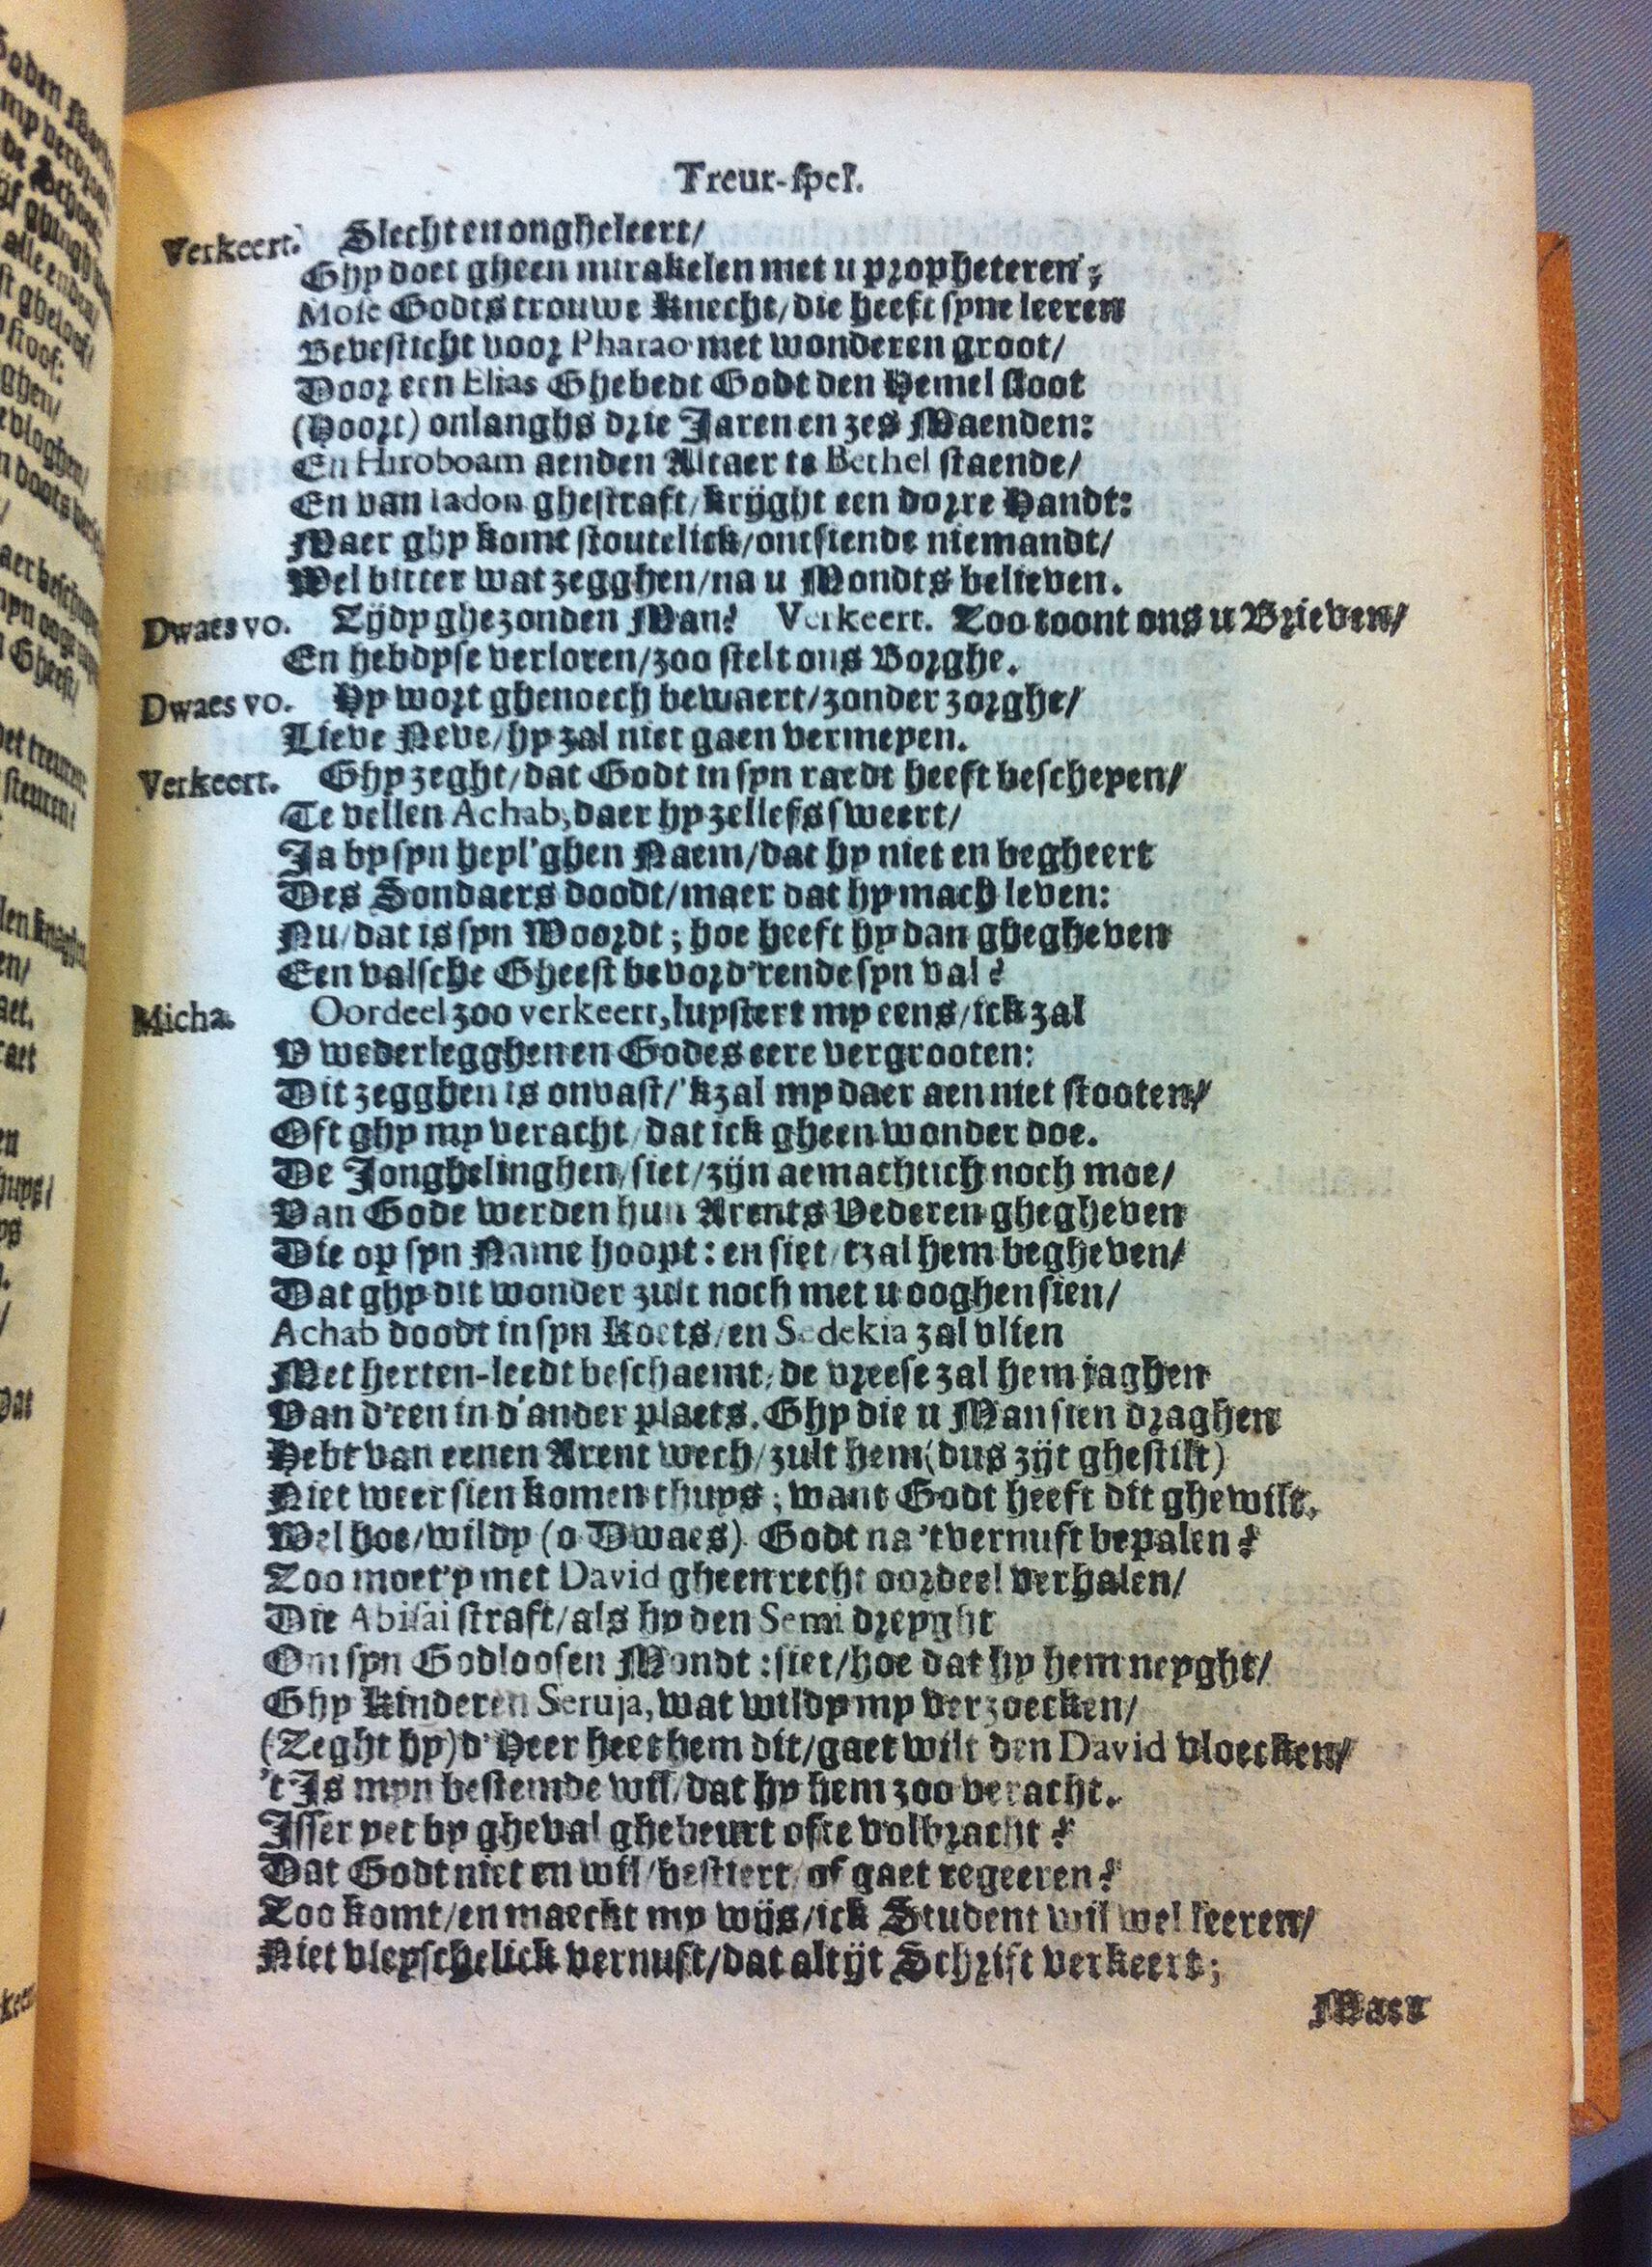 Treur-spel.
Verkeert. Slecht en ongheleert/
Ghy doet gheen mirakelen met u propheteren;
Mose Godts trouwe Knecht/die heeft syne leeren
Bevesticht voor Pharao met wonderen groot/
Door een Elias Ghebedt Godt den Hemel sloot
(Hoort) onlanghs drie Jaren en zes Maenden:
En Hiroboam aenden Altaer te Bethel staende/
En van Iadon ghestraft/krijght een dorre Handt:
Maer ghy komt stoutelick/ontsiende niemandt/
Wel bitter wat zegghen/na u Mondts believen.
Dwaes vo. Zijdy ghezonden Man? Verkeert. Zoo toont ons u Brieven/
En hebdyse verloren/zoo stelt ons Borghe.
Dwaes vo. Hy wort ghenoech bewaert/zonder zorghe/
Lieve Neve/hy zal niet gaen vermeyen.
Verkeert. Ghy zeght/dat Godt in syn raedt heeft bescheyen/
Te vellen Achab, daer hy zellefs sweert/
Ja by syn heyl'ghen Naem/dat hy niet en begheert
Des Sondaers doodt/maer dat hy mach leven:
Nu/dat is syn Woordt; hoe heeft hy dan ghegheven
Een valsche Gheest bevord'rende syn val?
Micha. Oordeel zoo verkeert, luystert my eens/ick zal
U wederlegghen en Godes eere vergrooten:
Dit zegghen is onvast/'kzal my daer aen niet stooten/
Oft ghy my veracht/dat ick gheen wonder doe.
De Jonghelinghen/siet/zijn aemachtich noch moe/
Van Gode werden hun Arents Vederen ghegheven
Die op syn Name hoopt: en siet/tzal hem begheven/
Dat ghy dit wonder zult noch met u ooghen sien/
Achab doodt in syn Koets/en Sedekia zal vlien
Met herten-leedt beschaemt/de vreese zal hem jaghen
Van d'een in d'ander plaets. Ghy die u Man sien draghen
Hebt van eenen Arent wech/zult hem (dus zijt ghestilt)
Niet weer sien komen thuys; want Godt heeft dit ghewilt.
Wel hoe/wildy (o Dwaes) Godt na 'tvernuft bepalen?
Zoo moet'y met David gheen recht oordeel verhalen/
Die Abisai straft/als hy den Semi dreyght
Om syn Godloosen Mondt: siet/hoe dat hy hem neyght/
Ghy Kinderen Seruja, wat wildy my verzoecken/
(Zeght hy) d'Heer heet hem dit/gaet wilt den David vloecken/
't Is myn bestemde wil/dat hy hem zoo veracht.
Isser yet by gheval ghebeurt ofte volbracht?
Dat Godt niet en wil/bestiert/of gaet regeeren?
Zoo komt/en maeckt my wijs/ick Student wil wel leeren/
Niet vleyschelick vernuft/dat altijt Schrift verkeert;
Maer